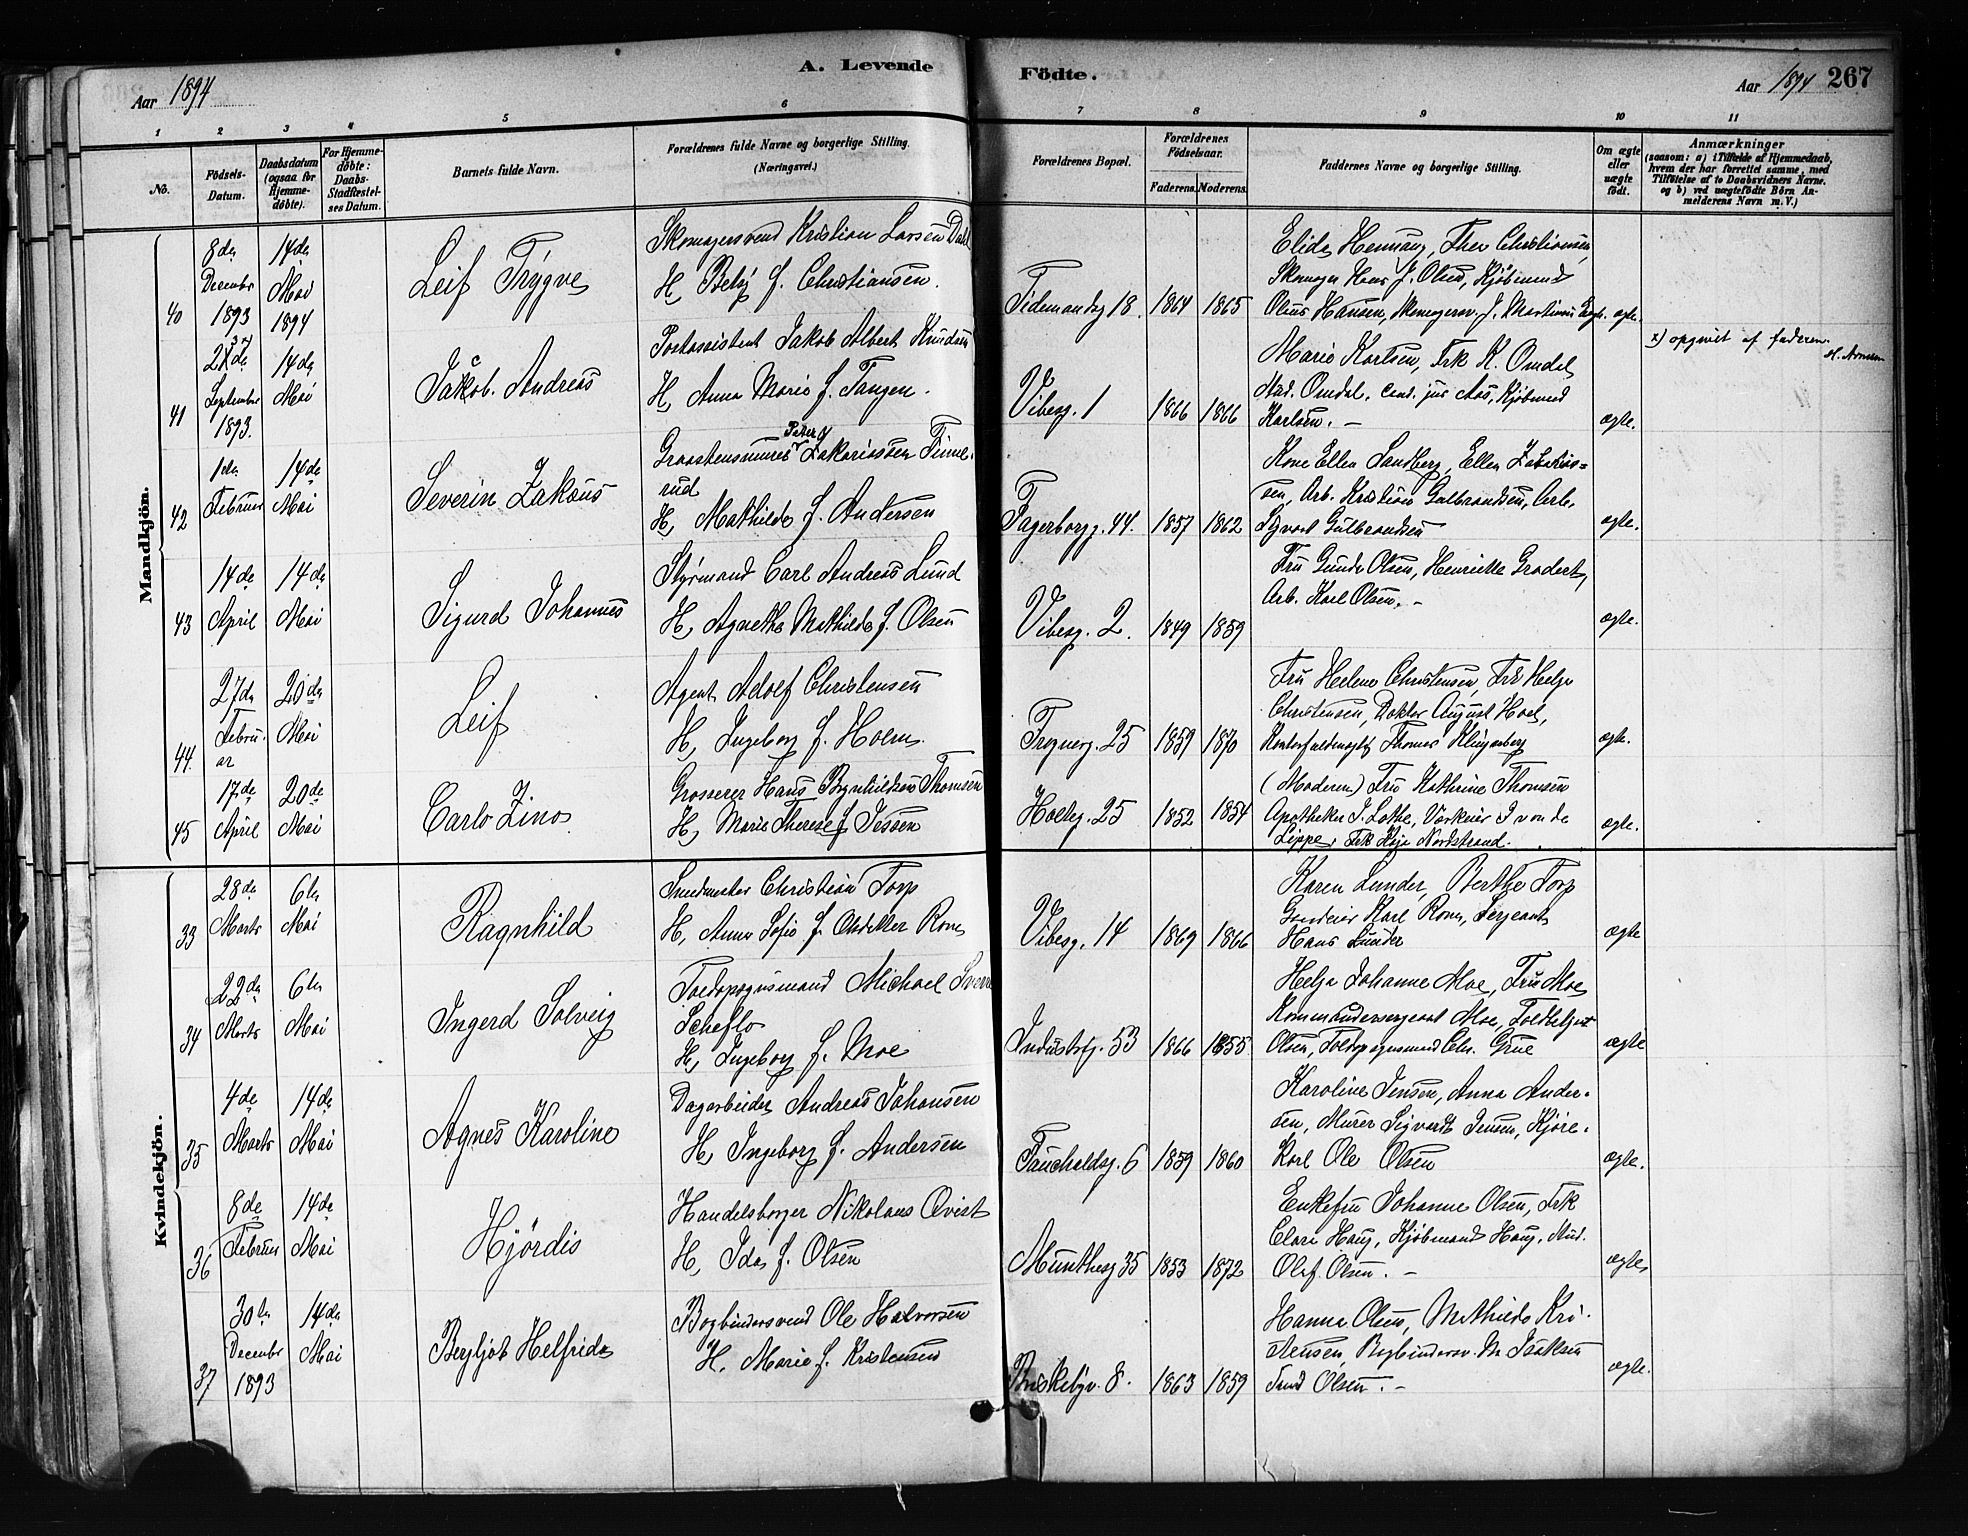 Aar 1894
A. Levende
Födte.
Aar 1894 267
1 2 3 4 5 6 7 8 9 10 11
No.
Födsels-
Datum.
Daabsdatum
(ogsaa for
Hjemme-
döbte).
For Hjemme-
döbte:
Daabs-
Stadfæstel-
ses Datum.
Barnets fulde Navn.
Forældrenes fulde Navne og borgerlige Stilling.
(Næringsvei.)
Forældrenes Bopæl.
Forældrenes
Födselsaar.
Faderens. Moderens.
Faddernes Navne og borgerlige Stilling.
Om ægte
eller
uægte
födt.
Anmærkninger
(saasom: a) i Tilfælde af Hjemmedaab,
hvem der har forrettet samme, med
Tilföielse af to Daabsvidners Navne.
og b) ved uægtefödte Börn An-
melderens Navn m. V.)
Mandkjön.
40
8de
Decembr
1893
14de
Mai
1894
Leif Trygve
Skomagersvend Kristian Larsen Dahl
H, Betsy f. Christiansen.
Tidemandsg 18. 1864 1865
Skomager Hans J. Olsen, Kjöbmand
Olaus Hansen, Skomagersv. J. Martinius
ægte.
41
de
September
1893.
14de
Mai
Jakob. Andreas
Postassistent Jakob Albert Knudsen
H, Anna Marie f. Tangen.
Vibesg. 1 1866 1866
Marie Karlsen, Frk K. Omdal
Stud. Omdal, cand. jur Aas, Kjöbmand
Karlsen. –
ægte.
x) opgivet af faderen.
42
1de
Februar
14de
Mai
Severin Zakæus
Graastensmurer Peter Zakariassen Finne-
rud
H, Mathilde f. Andersen
Fagerborgg. 44. 1857 1862
Kone Ellen Sandberg, Ellen Zakarias=
sen, Arb. Kristian Gulbrandsen, Arb.
Sigvart Gulbrandsen
ægte.
43
14de
April
14de
Mai
Sigurd Johannes
Styrmand Carl Andreas Lund
H, Agnethe Mathilde f. Olsen
Vibesg. 2. 1849 1859
Fru Gunda Olsen, Henriette Gradert,
Arb. Karl Olsen. –
ægte.
44.
27de
Febru-
ar
20de
Mai
Leif
Agent Adolf Christensen
H, Ingeborg f. Holm.
Frognerg. 25 1859 1870
Fru Helene Christensen, Frk Helga
Christensen, Doktor August Hoel,
Kontorfuldmægt Thomas Klingenberg
ægte.
45
17de
April
20de
Mai
Carlo Zino
Grosserer Hans Brynhildsen Thomsen
H, Marie Therese f Jessen
Holteg. 25 1852 1854
(Moderen) Fru Kathrine Thomsen
Apotheker J. Lothe, Værkeier J von de
Lippe, Frk Kaja Nordstrand.
ægte.
Kvindekjön.
33
28de
Marts
6te
Mai
Ragnhild
Smedmester Christian Torp
H, Anna Sofie f. Rom
Vibesg. 14 1869 1866
Karen Lunder, Berthe Torp
Gaardeier Karl Rom, Sergeant
Hans Lunder
ægte
34
22de
Marts
6te
Mai
Ingerd Solveig
Toldopsynsmand Michael Sverre
Scheflo
H, Ingeborg f. Moe
Industrig. 53 1866 1855
Helga Johanne Moe, Fru Moe
Kommandersergeant Moe, Toldbetjent
Olsen, Toldopsynsmand Chr. Grue
ægte
35
4de
Marts
14de
Mai
Agnes Karoline
Dagarbeider Andreas Johansen
H, Ingeborg f. Andersen
Fauchaldsg. 6 1859 1860
Karoline Jensen, Anna Ander-
sen, Murer Sigvardt Jensen, Kjöre-
karl Ole Olsen
ægte.
36
8de
Februar
14de
Mai
Hjördis
Handelsborger Nikolaus Qvist
H, Ida f. Olsen
Munthesg 35 1853 1872
Enkefru Johanne Olsen, Frk
Clara Haug, Kjöbmand Haug, Stud.
Olaf Olsen. –
ægte,
37
30te
Decembr
1893
14de
Mai
Bergljot Helfride
Bogbindersvend Ole Halvorsen
H, Marie f. Kristensen
Briskebyv. 8. 1863 1859
Hanna Olsen, Mathilde Kri-
stensen, Bogbindersv. M Isaksen
Olsen. –
ægte.